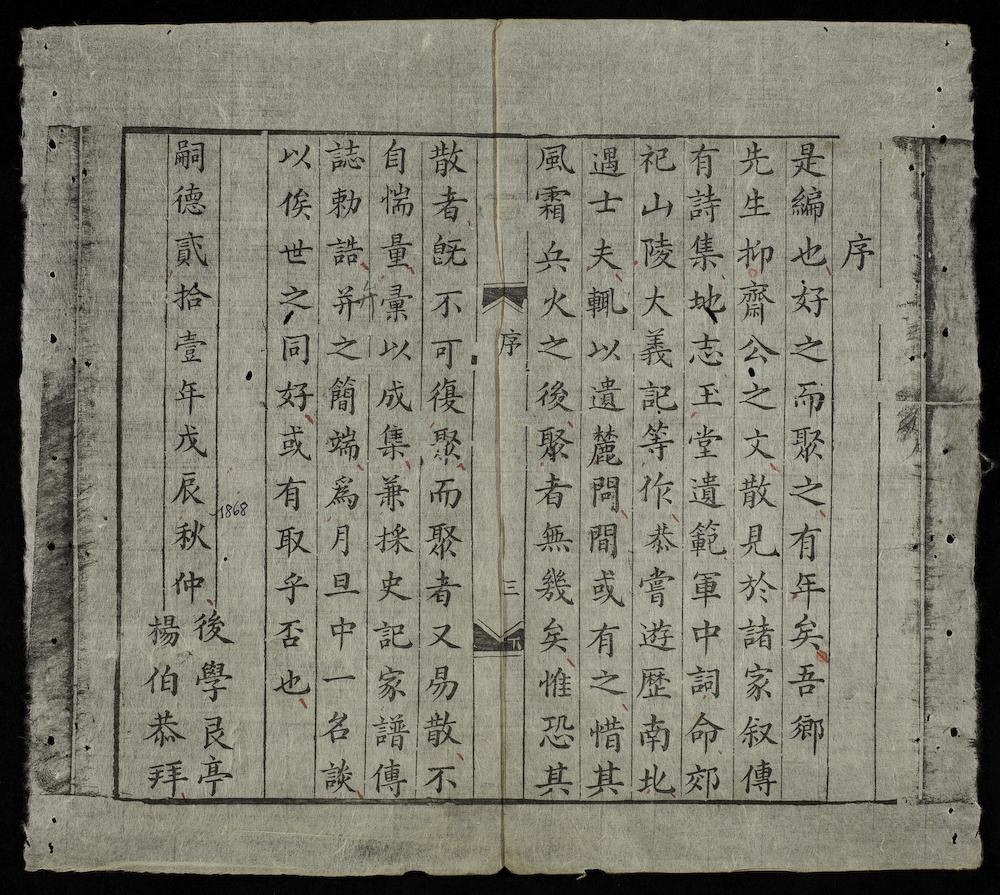 序
是編也好之而聚之有年矣吾鄉
先生抑齋公之文散見於諸家叙傳
有詩集地志玉堂遺範軍中詞命郊
祀山陵大義記等作恭嘗遊歷南北
遇士夫輒以遺麓問間或有之惜其
風霜兵火之後聚者無幾矣惟恐其
序
三
散者旣不可復聚而聚者又易散不
自惴量彙以成集兼採史記家譜傳
誌勅誥并之簡端爲月旦中一名談
以俟世之同好或有取乎否也
嗣德貳拾壹年戊辰秋仲
1868
後學艮亭
楊伯恭拜